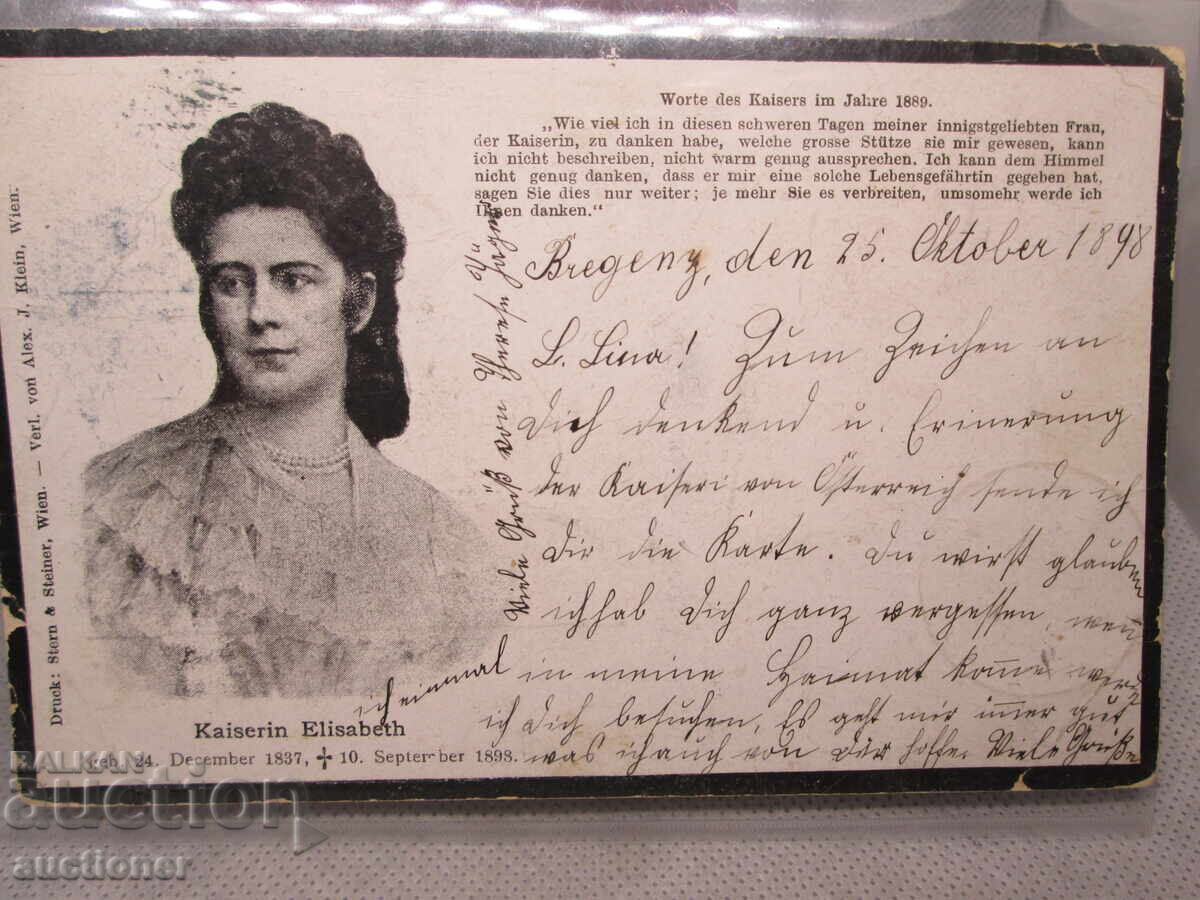 Worte des Kaisers im Jahre 1889.
„Wie viel ich in diesen schweren Tagen meiner innigstgeliebten Frau,
der Kaiserin, zu danken habe, welche grosse Stütze sie mir gewesen, kann
ich nicht beschreiben, nicht warm genug aussprechen. Ich kann dem Himmel
nicht genug danken, dass er mir eine solche Lebensgefährtin gegeben hat,
sagen Sie dies nur weiter; je mehr Sie es verbreiten, umsomehr werde ich
Ihnen danken.“
Bregenz, den 25. Oktober 1898
L. Lina! Zum Zeichen an
Dich denkend u. Erinerung
der Kaiseri von Österreich sende ich
Dir die Karte. Du wirst glauben
ich hab Dich ganz vergessen, wen̄
ich einmal in meine Heimat kom̄e werd
ich Dich besuchen, Es geht mir im̄er gut
was ich auch von Dir hoffe. Viele Grüße
Viele Grüß von Therese
Druck: Stern & Steiner, Wien. — Verl. von Alex. J. Klein, Wien.
Kaiserin Elisabeth
geb. 24. December 1837, ✝ 10. September 1898.
BALKAN
auction
auctioner